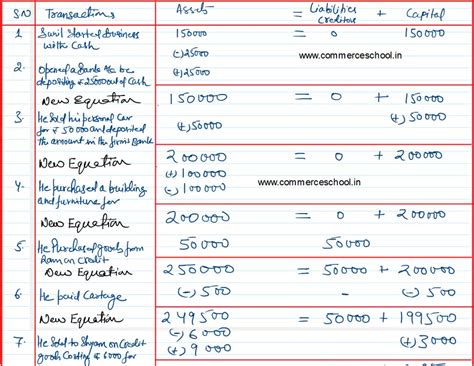 SNO Transactions Assets = Liabilities Creditors + Capital
1 Sunil Started Business with Cash 150000 = 0 + 150000
www.commerceschool.in
2. Opened a Bank A/c be depositing ₹ 25000 out of Cash (+) 25000 (-) 25000
New Equation 150000 = 0 + 150000
3. He Sold his personal Car for ₹ 50000 and deposited the amount in the firm's Bank (+) 50000 (+) 50000
New Equation 200000 = 0 + 200000
4. He purchased a building and furniture for (+) 100000 (-) 100000
www.commerceschool.in
New Equation 200000 = 0 + 200000
5 He Purchased goods from Ram on Credit 50000 50000
New Equation 250000 = 50000 + 200000
6 He paid Cartage (-) 500 (-) 500
New Equation 249500 = 50000 + 199500
7. He Sold to Shyam on Credit goods Costing ₹ 6000 for (-) 6000 (+) 9000 (+) 3000